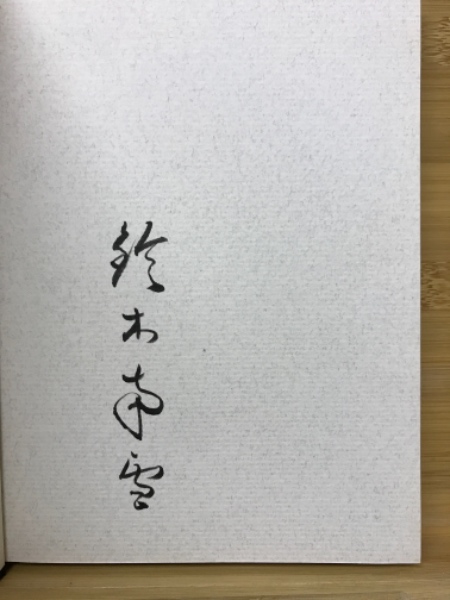 鈴木南雪